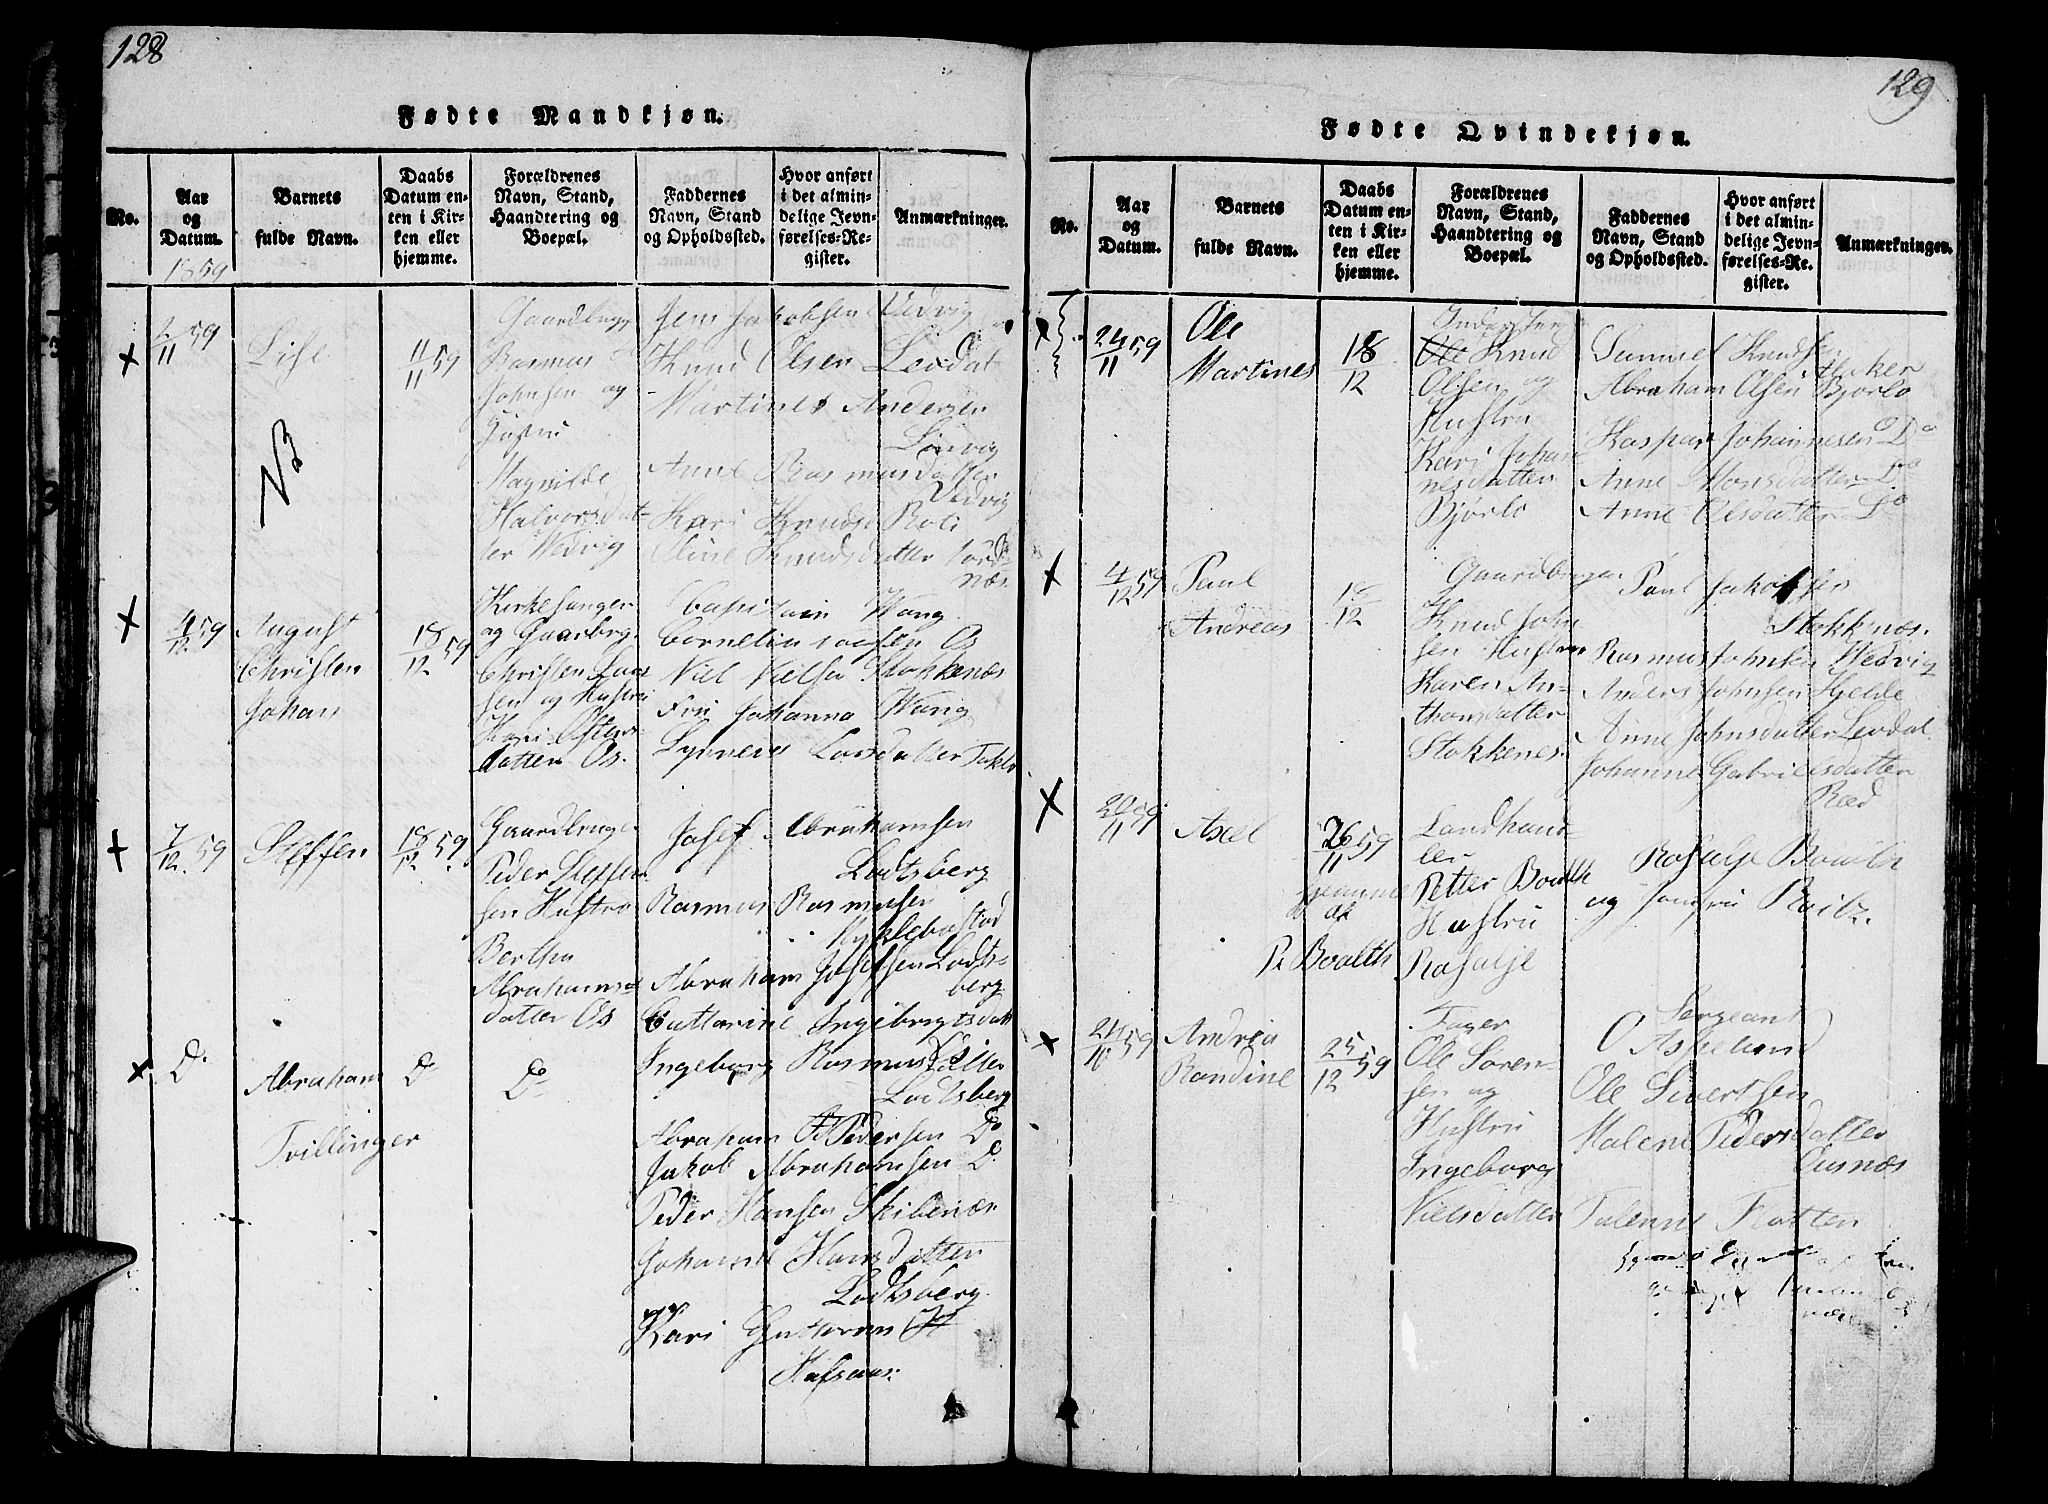 128
Fødte Mandkjøn.
No.
Aar og Datum.
Barnets fulde Navn.
Daabs Datum enten i Kirken eller hjemme.
Forældrenes Navn, Stand, Haandtering og Boepæl.
Faddernes Navn, Stand og Opholdssted.
Hvor anført i det almindelige Jevnførelses-Register.
Anmærkninger.
1859
2/11 59
Lise
NB
11/11 59
Rasmus
Johnsen og
Magnilde
Halvorsdat-
ter Wedvig
Jens Jakobsen Vedvig
Knud Olsen Levdal
Martines Andersen
Anne Rasmusdatter
Vedvig
Kari Knuds Roti
Oline Knudsdatter Nord-
næs
4/12 59
August
Christen
Johan
18/12 59
Kirkesanger
og Gaardbrg.
Christen Lars
sen og Hustru
Kari
datter Os.
Capitain Wang
Niel Nielsen Stokkenæs
Frú Johanna Wang
Larsdatter
7/12 59
Steffen
18/12 59
Gaardbruger
Peder Steffen
sen Hustro
Berthe
Abrahams-
datter Os
Josef Abrahamsen
Lodtsberg
Rasmus Rasmusen
Myklebostad
Abraham Josefsen Lodts-
berg
Cathrine Ingebrigtsdatt
D.
Abraham
Tvillinger
D
Do
Ingeborg Rasmusdatter
Lodtsberg
Abraham Pedersen Do
Jakob Abrahamsen D.
Peder Hansen Skibenæs
Johanne Hansdatter
Lodtsberg.
Kari
129
Fødte Qvindekjøn.
No.
Aar og Datum.
Barnets fulde Navn.
Daabs Datum enten i Kirken eller hjemme.
Forældrenes Navn, Stand, Haandtering og Boepæl.
Faddernes Navn, Stand og Opholdssted.
Hvor anført i det almindelige Jevnførelses-Register.
Anmærkninger.
24/11 59
Ole
Martines
18/12
Inderster
Ole Knud
Olsen og
Hustru
Kari Johan
nesdatter
Bjørlo
Samuel Knudsen
Abraham Olsen Bjørlo
Kaspar Johannesen Do
Anne Monsdatter Do
Anne Olsdatter Do
4/12 59
Paul
Andreas
18/12
Gaardbruger
Knud John
sen Hustru
Karen An-
thonsdatter
Stokkenes.
Paul Jakobsen
Stokkenæs.
Rasmus Johnsen Wedvig
Anders Johnsen Hjelde
Anne Johnsdatter Levdal.
Johanne Gabrielsdatter
Ræd
20/11 59
Axel
26/11 59
hjemme
af
P. Boalth
Landhand-
ler
Petter Boalth
Hustru
Rosalje
Rosalje Boalth
og Jomfru
24/10 59
Andrea
Randine
25/12 59
Ole Soren-
sen og
Hustru
Ingeborg
Nielsdatter
Sergeant
O Askelund
Ole Sivertsen
Malene Pedersdatter